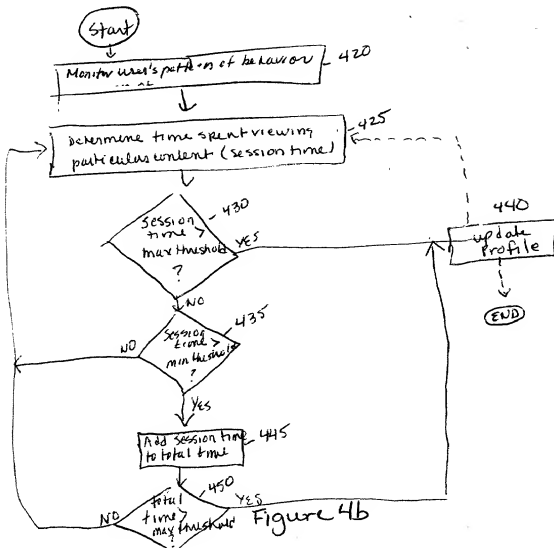 Start
Monitor user's pattern of behavior
420
Determine time spent viewing
particular content (session time)
425
Session
time >
max threshold
?
430
YES
NO
440
update
Profile
END
Session
time >
min threshold
?
435
NO
YES
Add session time
to total time
445
total
time >
max threshold
?
450
YES
NO
Figure 4b